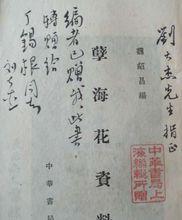 劉大杰先生指正
魏紹昌編
孽海花資料
中華書局
編者已贈我此書
轉贈給
丁錫根同志
劉大杰
中華書局上
海編輯所贈